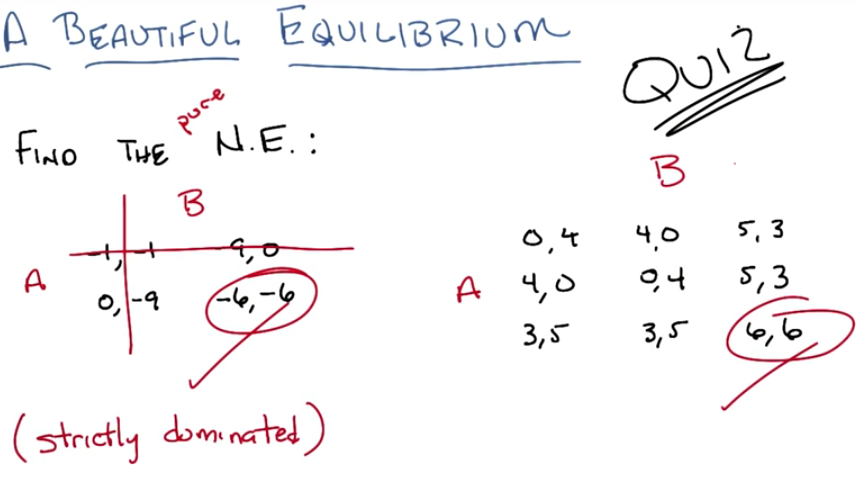 A BEAUTIFUL EQUILIBRIUM
QUIZ
FIND THE pure N.E.:
B
-1, -1 -9, 0
A
0, -9 -6, -6
(strictly dominated)
B
0, 4 4,0 5, 3
A 4, 0 0,4 5, 3
3, 5 3, 5 6, 6